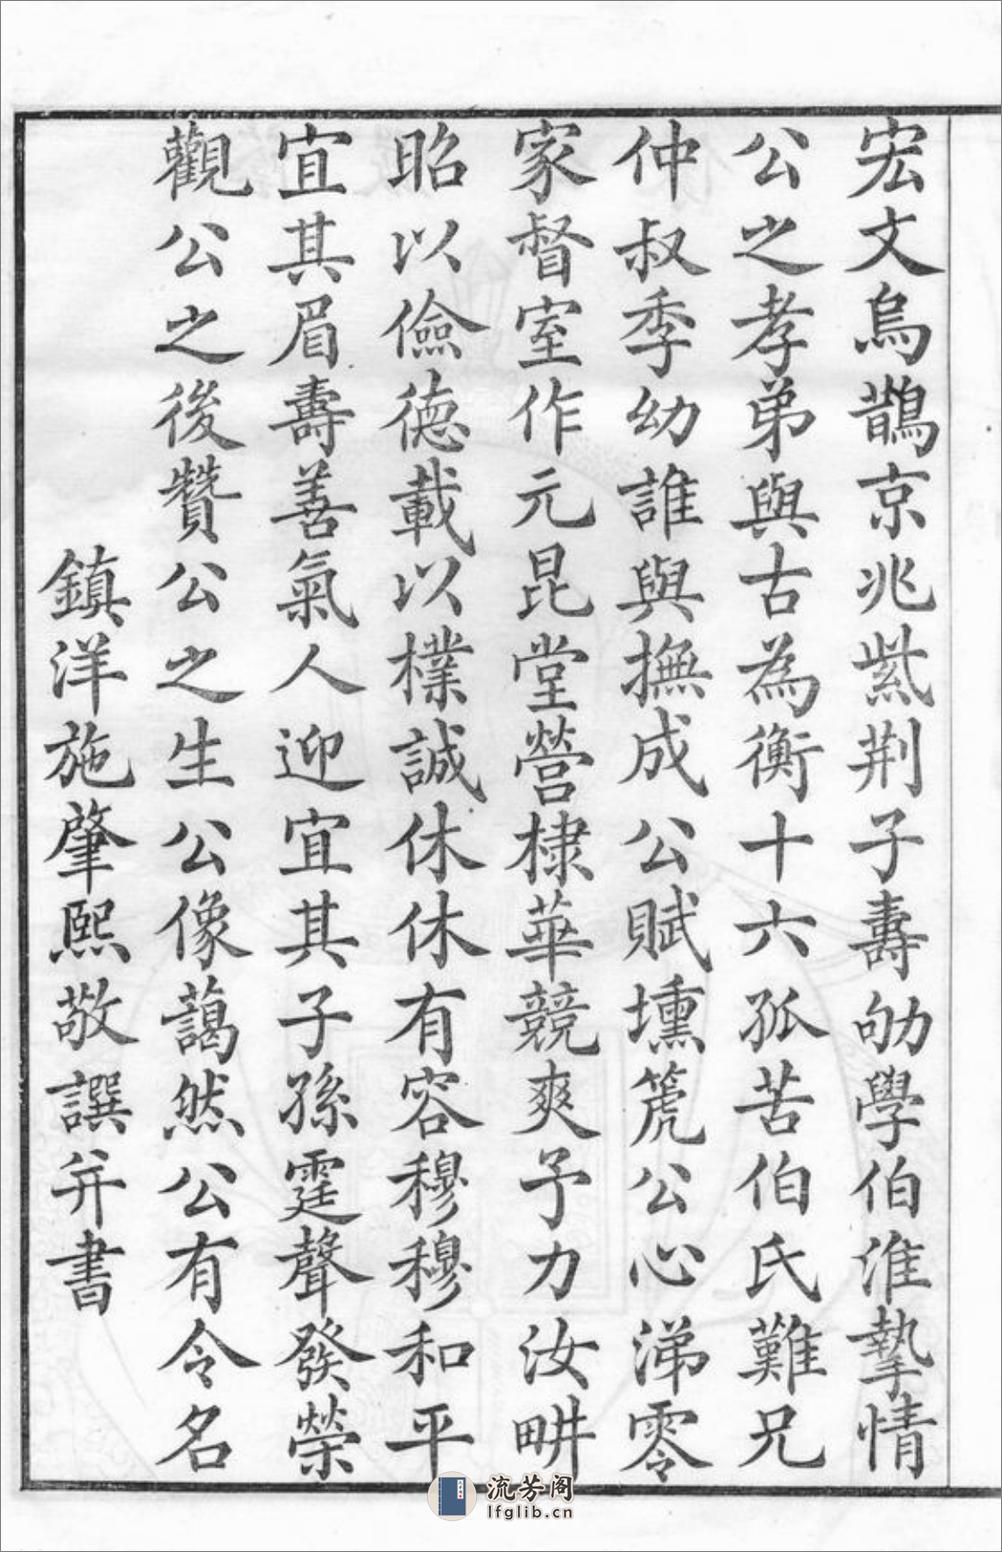 宏文烏鵲京兆紫荆子壽劬學伯淮摯情
公之孝弟與古為衡十六孤苦伯氏難兄
仲叔季幼誰與撫成公賦壎箎公心涕零
家督室作元昆堂營棣華競爽予力汝畊
昭以儉德載以樸誠休休有容穆穆和平
宜其眉壽善氣人迎宜其子孫霆聲發榮
觀公之後贊公之生公像藹然公有令名
鎮洋施肇熙敬譔并書
流芳阁
lfglib.cn